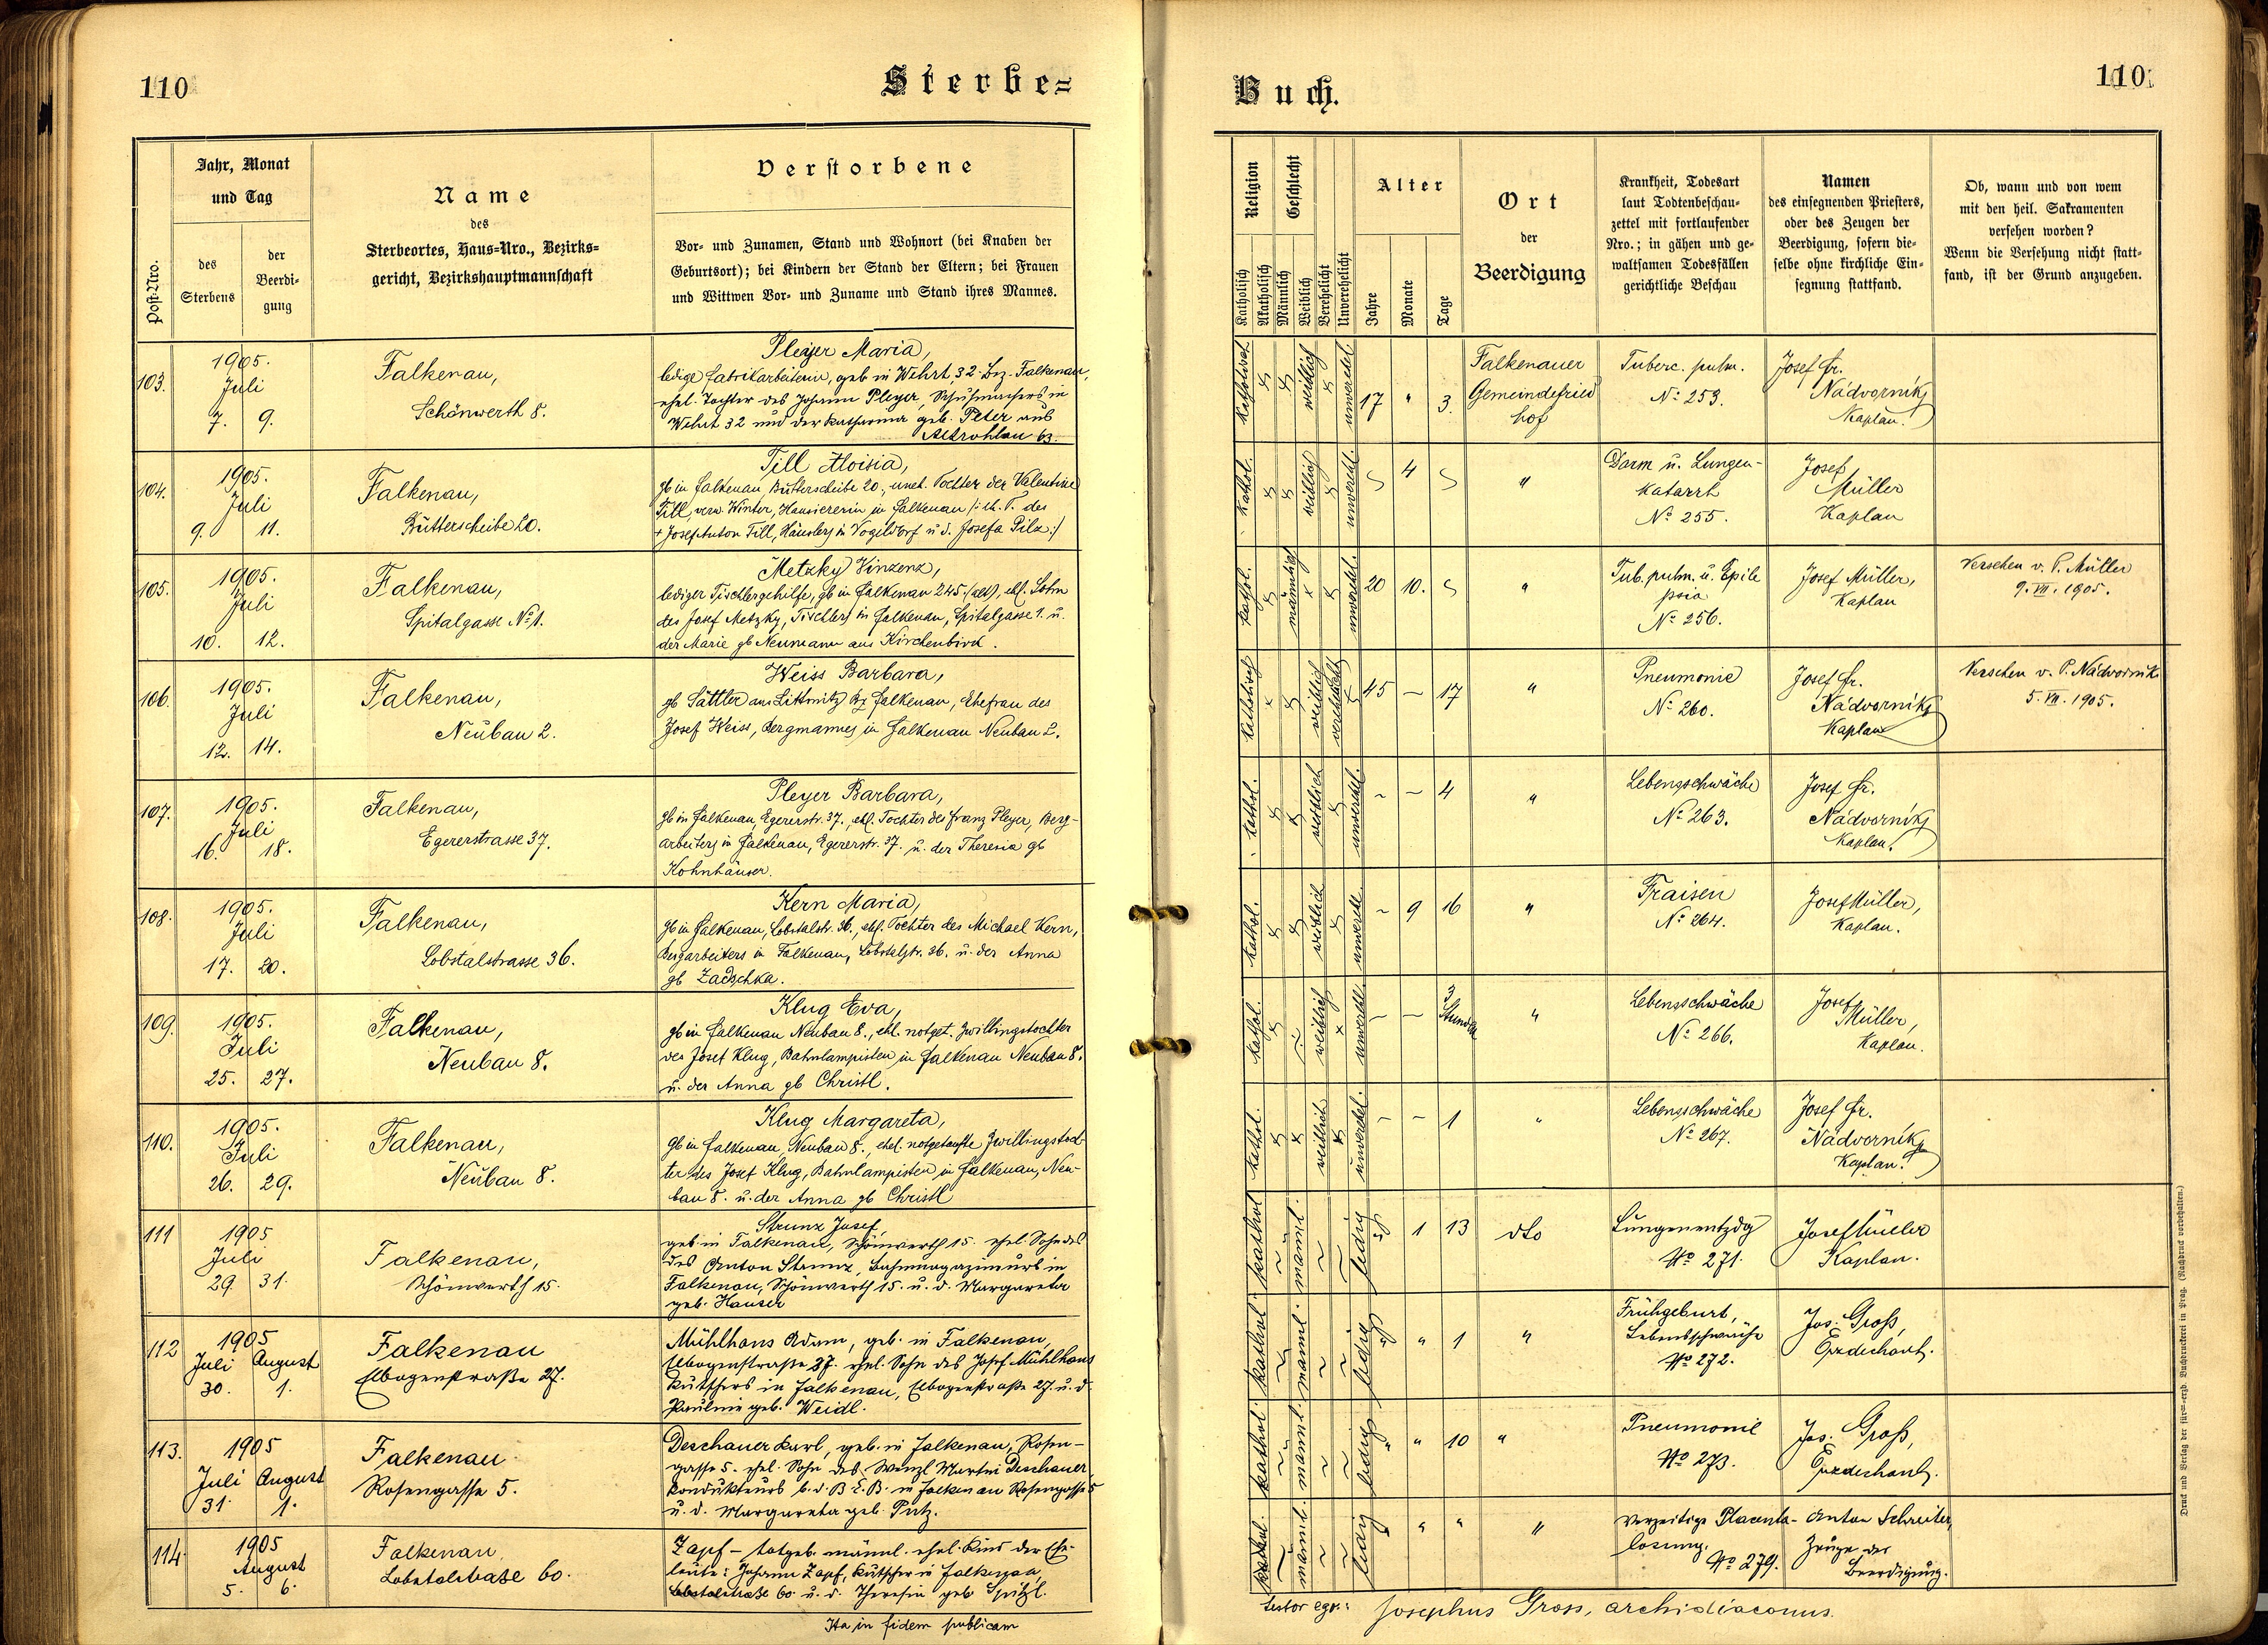 110
Sterbe=
Jahr, Monat
und Tag
Post-Nro.
des
Sterbens
der
Beerdi-
gung
Name
des
Sterbeortes, Haus=Nro., Bezirks=
gericht, Bezirkshauptmannschaft
Verstorbene
Vor- und Zunamen, Stand und Wohnort (bei Knaben der
Geburtsort); bei Kindern der Stand der Eltern; bei Frauen
und Wittwen Vor- und Zuname und Stand ihres Mannes.
103.
1905.
Juli
7. 9.
Falkenau,
Schönwerth 8.
Pleyer Maria,
ledige Fabrikarbeiterin, geb in Wehrt, 32 Bez. Falkenau,
ehel. Tochter des Johann Pleyer, Schuhmachers in
Wehrt 32 und der Katharina geb. Peter aus
Altrohlau 63.
104.
1905.
Juli
9. 11.
Falkenau,
Rütterscheibe 20.
Till Aloisia,
gb in Falkenau, Rütterscheibe 20., unehl. Tochter der Valentine
Till, verw. Winter, Hausiererin in Falkenau /: eh. T. des
+ Josef Anton Till, Häuslers in Vogeldorf u d. Josefa Pilz :/
105.
1905.
Juli
10. 12.
Falkenau,
Spitalgasse No 1.
Metzky Vinzenz,
lediger Tischlergehilfe, gb in Falkenau 245 (alt), ehl. Sohn
des Josef Metzky, Tischlers in Falkenau, Spitalgasse 1. u.
der Marie gb Neumann aus Kirchenbirk.
106.
1905.
Juli
12. 14.
Falkenau,
Neubau 2.
Weiss Barbara,
gb Sättler aus Littmitz Bz Falkenau, Ehefrau des
Josef Weiss, Bergmannes in Falkenau Neubau 2.
107.
1905.
Juli
16. 18.
Falkenau,
Egererstrasse 37.
Pleyer Barbara,
gb in Falkenau, Egererstr. 37., ehl. Tochter des Franz Pleyer, Berg-
arbeiters in Falkenau, Egererstr. 37. u. der Theresia gb
Kohnhäuser.
108.
1905.
Juli
17. 20.
Falkenau,
Lobstalstrasse 36.
Kern Maria,
gb in Falkenau, Lobstalstr. 36., ehl. Tochter des Michael Kern,
Bergarbeiters in Falkenau, Lobstalstr. 36. u. der Anna
gb Zadschka.
109.
1905.
Juli
25. 27.
Falkenau,
Neubau 8.
Klug Eva,
gb in Falkenau Neubau 8., ehl. notget. Zwillingstochter
des Josef Klug, Bahnlampisten in Falkenau Neubau 8.
u. der Anna gb Christl.
110.
1905.
Juli
26. 29.
Falkenau,
Neubau 8.
Klug Margareta,
gb in Falkenau, Neubau 8., ehel. notgetaufte Zwillingstoch-
ter des Josef Klug, Bahnlampisten in Falkenau, Neu-
bau 8. u. der Anna gb Christl
111
1905
Juli
29. 31.
Falkenau,
Schönwerth 15.
Strunz Josef,
geb. in Falkenau, Schönwerth 15. ehel. Sohn des
des Anton Strunz, in
Falkenau, Schönwerth 15. u. d. Margareta
geb. Hauser
112
1905
Juli August
30. 1.
Falkenau
Elbogenstraße 27.
Mühlhans Adam, geb. in Falkenau,
Elbogenstraße 27. ehel. Sohn des Josef Mühlhans
Kutschers in Falkenau, Elbogenstraße 27. u. d.
Pauline geb. Weidl.
113.
1905
Juli August
31. 1.
Falkenau
Rosengasse 5.
Deschauer Karl, geb. in Falkenau, Rosen-
gasse 5. ehel. Sohn des Wenzl Martin Deschauer
Kondukteurs b. d. B. E. B. in Falkenau Rosengasse 5
u. d. Margareta geb. Putz.
114.
1905
August
5. 6.
Falkenau,
Lobstalstraße 60.
Zapf – totgeb. männl. ehel. Kind der Ehe-
leute: Johann Zapf, Kutscher in Falkenau,
Lobstalstraße 60. u. d. Theresia geb. Spitzl.
Ita in fidem publicam
Buch.
110.
Religion
Katholisch
Akatholisch
Geschlecht
Männlich
Weiblich
Verehelicht
Unverehelicht
Alter
Jahre
Monate
Tage
Ort
der
Beerdigung
Krankheit, Todesart
laut Todtenbeschau-
zettel mit fortlaufender
Nro.; in gähen und ge-
waltsamen Todesfällen
gerichtliche Beschau
Namen
des einsegnenden Priesters,
oder des Zeugen der
Beerdigung, sofern die-
selbe ohne kirchliche Ein-
segnung stattfand.
Ob, wann und von wem
mit den heil. Sakramenten
versehen worden?
Wenn die Versehung nicht statt-
fand, ist der Grund anzugeben.
weiblich
17 " 3.
Falkenauer
Gemeindefried
hof
Tuberc. pulm.
No 253.
Josef Fr.
Nádvorník
Kaplan.
kathol.
weiblich
4
"
Darm u. Lungen-
katarrh
No 255.
Josef
Müller
Kaplan
kathol.
männlich
20 10.
"
Tub. pulm. u. Epile
psia
No 256.
Josef Müller,
Kaplan
Versehen v. P. Müller
9. VII. 1905.
katholisch
weiblich
verehelicht
45 – 17
"
Pneumonie
No 260.
Josef Fr.
Nádvorník
Kaplan
Versehen v. P. Nádvorník
5. VII. 1905.
kathol.
weiblich
– – 4
"
Lebensschwäche
No 263.
Josef Fr.
Nádvorník
Kaplan.
kathol.
weiblich
– 9 16
"
Fraisen
No 264.
Josef Müller,
Kaplan.
kathol.
weiblich
– – 3 Stunden
"
Lebensschwäche
No 266.
Josef
Müller,
Kaplan.
kathol.
weiblich
– – 1
"
Lebensschwäche
No 267.
Josef Fr.
Nádvorník
Kaplan.
kathol
männl.
ledig
1 13
dto
Lungenentzdg
No 271.
Josef Müller
Kaplan.
kathol.
männl.
ledig
" 1
"
Frühgeburt,
Lebensschwäche
No 272.
Jos. Groß,
Erzdechant.
kathol.
männl.
ledig
" " 10
"
Pneumonie
No 273.
Jos. Groß,
Erzdechant.
kathol.
männl.
ledig
" "
"
Vorzeitige Placenta-
lösung.
No 279.
Anton Schreiter,
Zeuge der
Beerdigung.
testor ego: Josephus Gross, archidiaconus.
Druck und Verlag der fürst-erzb. Buchdruckerei in Prag. (Nachdruck vorbehalten.)